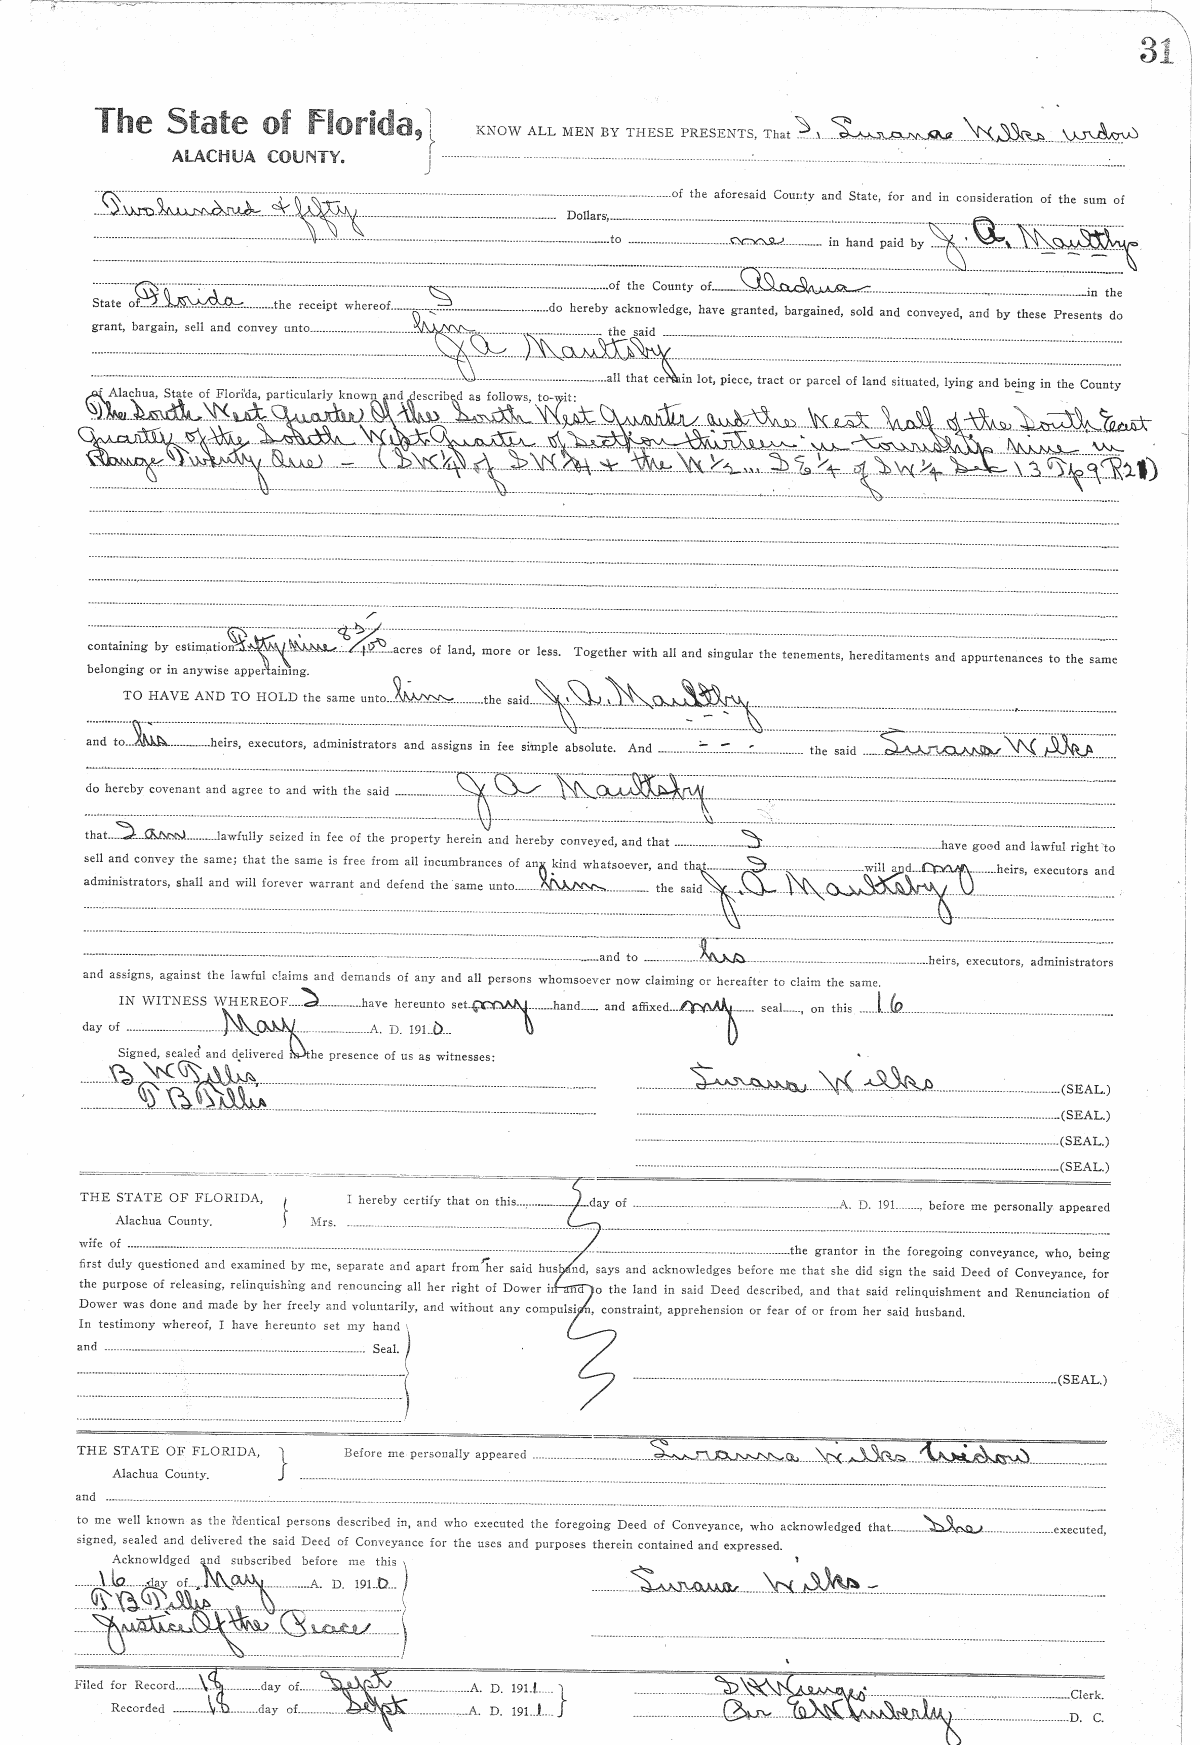 31
The State of Florida,
ALACHUA COUNTY.
KNOW ALL MEN BY THESE PRESENTS, That I, Surana Wilks widow
of the aforesaid County and State, for and in consideration of the sum of
Two hundred & fifty Dollars,
to me in hand paid by J. A. Maultby
of the County of Alachua in the
State of Florida the receipt whereof I do hereby acknowledge, have granted, bargained, sold and conveyed, and by these Presents do
grant, bargain, sell and convey unto him the said
J A Maultsby
all that certain lot, piece, tract or parcel of land situated, lying and being in the County
of Alachua, State of Florida, particularly known and described as follows, to-wit:
The South West Quarter Of the South West Quarter and the West half of the South East
Quarter of the South West Quarter of Section thirteen in township nine in
Range Twenty One - (SW¼) of SW¼ & the W½ .. SE¼ of SW¼ Sec 13 Tp 9 R21)
containing by estimation Fifty nine 85/100 acres of land, more or less. Together with all and singular the tenements, hereditaments and appurtenances to the same
belonging or in anywise appertaining.
TO HAVE AND TO HOLD the same unto him the said J. A. Maultby
and to his heirs, executors, administrators and assigns in fee simple absolute. And - - - the said Surana Wilks
do hereby covenant and agree to and with the said J A Maultsby
that I am lawfully seized in fee of the property herein and hereby conveyed, and that I have good and lawful right to
sell and convey the same; that the same is free from all incumbrances of any kind whatsoever, and that I will and my heirs, executors and
administrators, shall and will forever warrant and defend the same unto him the said J. A Maultsby
and to his heirs, executors, administrators
and assigns, against the lawful claims and demands of any and all persons whomsoever now claiming or hereafter to claim the same.
IN WITNESS WHEREOF I have hereunto set my hand and affixed my seal, on this 16
day of May A. D. 1910
Signed, sealed and delivered in the presence of us as witnesses:
B W Tillis
T B Tillis
Surana Wilks (SEAL.)
(SEAL.)
(SEAL.)
(SEAL.)
THE STATE OF FLORIDA,
Alachua County.
I hereby certify that on this day of A. D. 191 , before me personally appeared
Mrs.
wife of the grantor in the foregoing conveyance, who, being
first duly questioned and examined by me, separate and apart from her said husband, says and acknowledges before me that she did sign the said Deed of Conveyance, for
the purpose of releasing, relinquishing and renouncing all her right of Dower in and to the land in said Deed described, and that said relinquishment and Renunciation of
Dower was done and made by her freely and voluntarily, and without any compulsion, constraint, apprehension or fear of or from her said husband.
In testimony whereof, I have hereunto set my hand
and Seal.
(SEAL.)
THE STATE OF FLORIDA,
Alachua County.
Before me personally appeared Suranna Wilks Widow
and
to me well known as the identical persons described in, and who executed the foregoing Deed of Conveyance, who acknowledged that She executed,
signed, sealed and delivered the said Deed of Conveyance for the uses and purposes therein contained and expressed.
Acknowldged and subscribed before me this
16 day of May A. D. 1910
T B Tillis
Justice Of the Peace
Surana Wilks -
Filed for Record 18 day of Sept A. D. 1911
Recorded 18 day of Sept A. D. 1911
S H Wienges Clerk.
Per E Wimberly D. C.